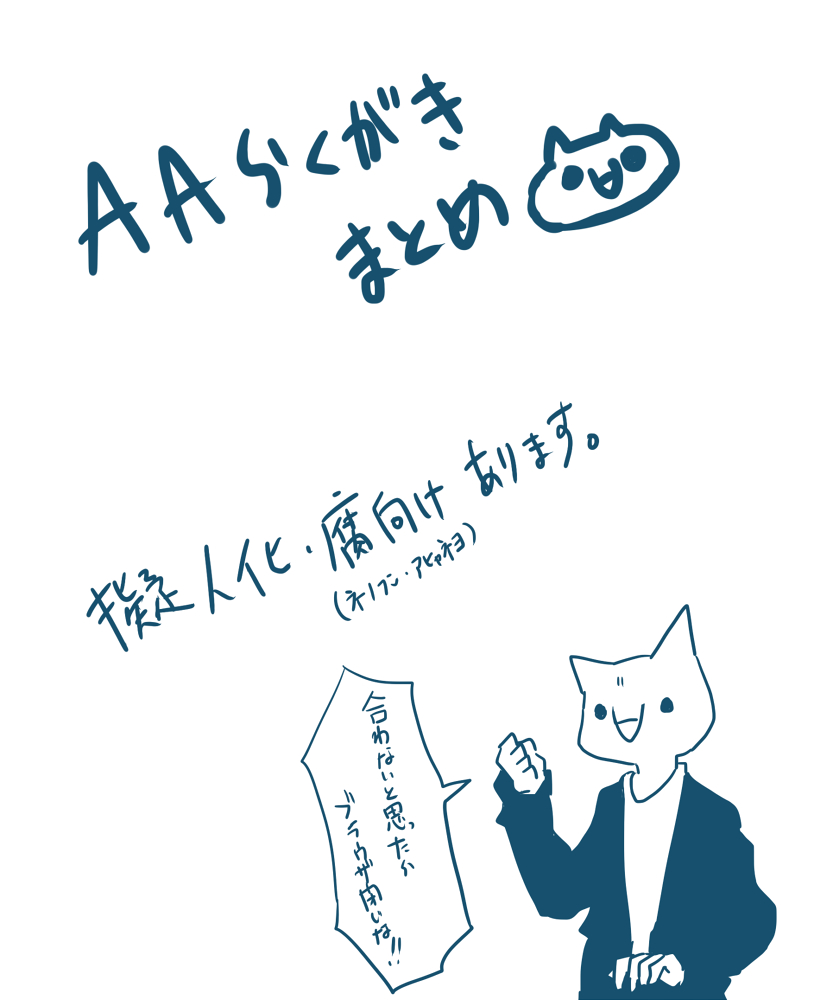 AAらくがき
まとめ
擬人化・腐向けあります。
(ネノフン・アヒャネヨ)
合わないと思ったら
ブラウザ閉いな!!